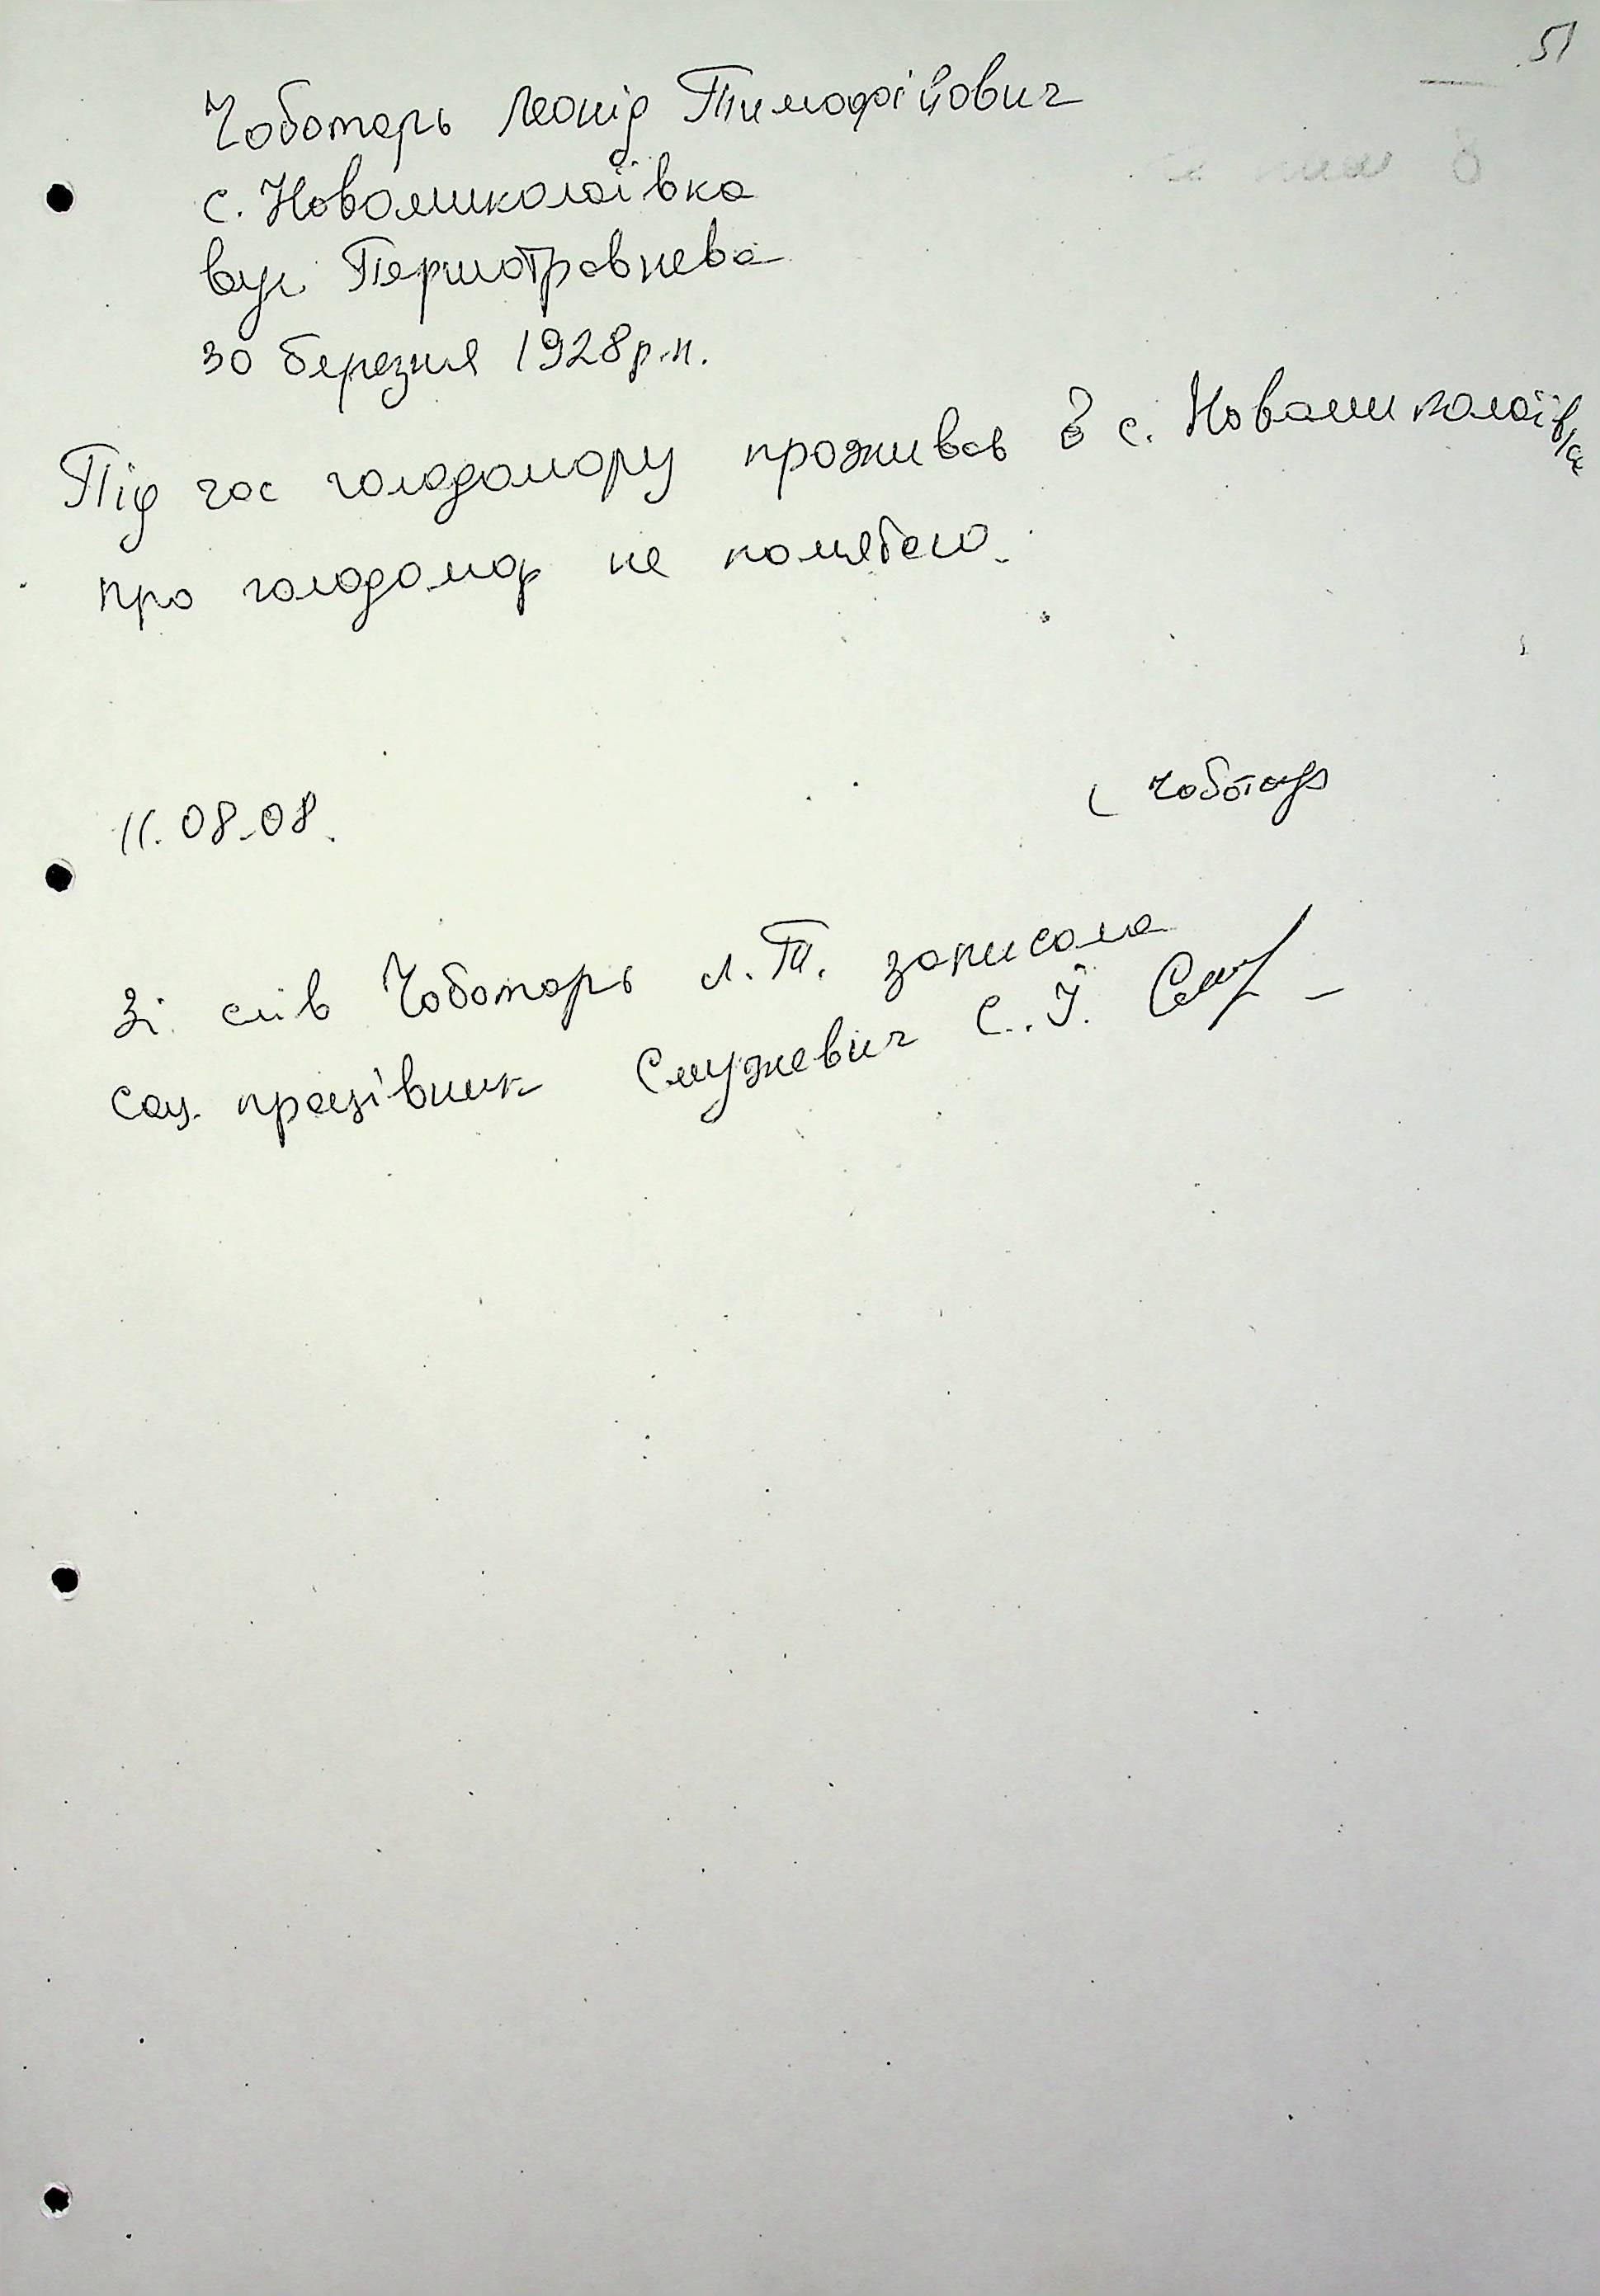 51
Чоботарь Леонід Тимофійович
с. Новомиколаївка
вул. Першотравнева
30 березня 1928 р.н.
Під час голодомору проживав в с. Новомиколаївка
про голодомор не помятаю.
11.08.08.
Чоботар
Зі слів Чоботарь Л.Т. записала
соц. працівник Служевич С.І.